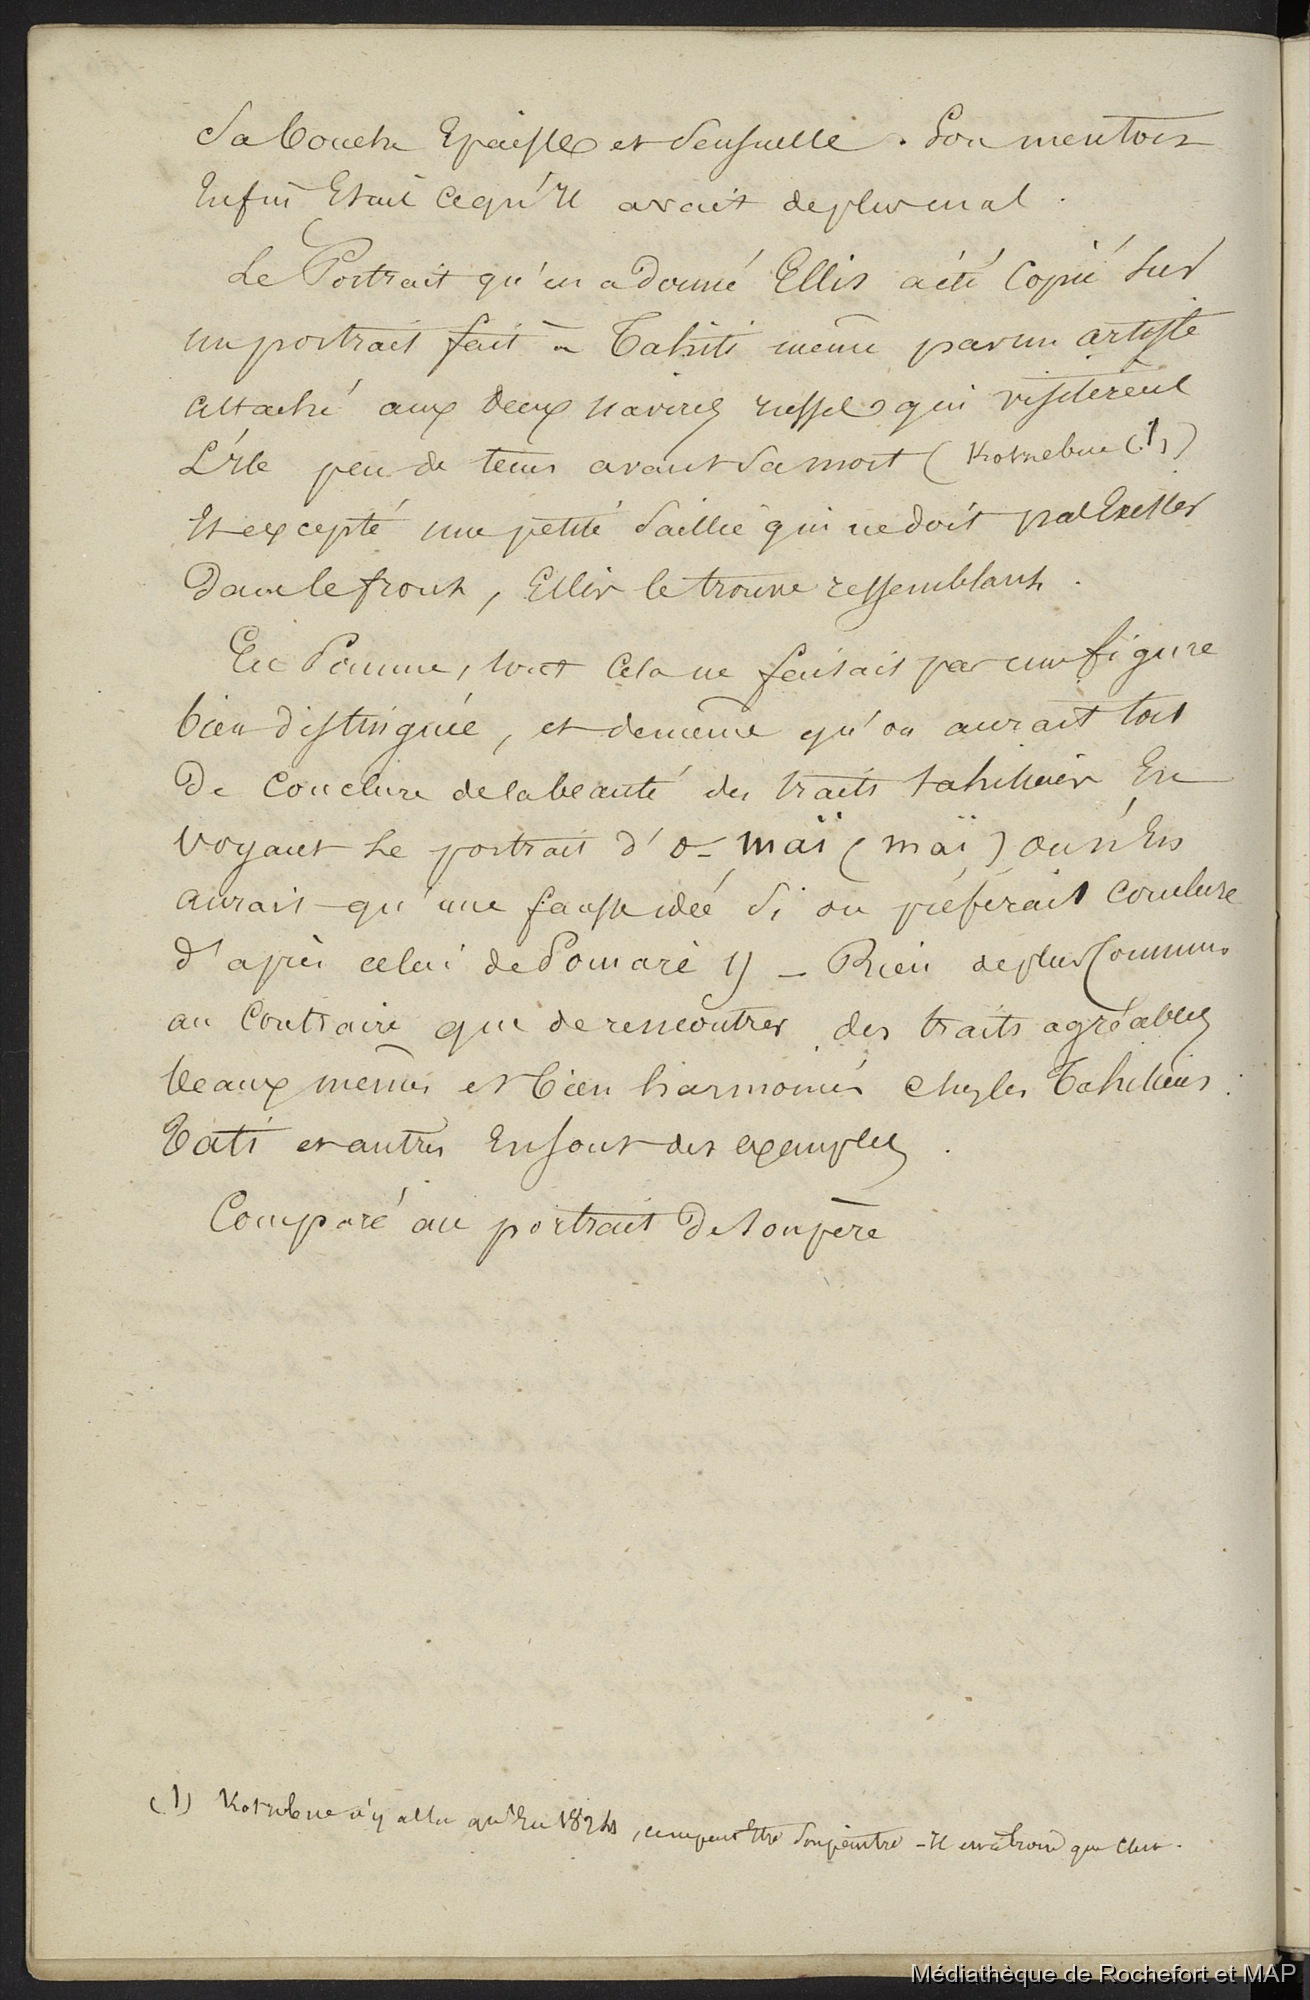 Sa bouche Epaisse et Sensuelle. Son menton
Enfin Etait ce qu'il avait de plus mal.
Le Portrait qu'en a Donné Ellis a été Copié sur
un portrait fait à Tahiti même par un artiste
attaché aux deux navires russes qui visitèrent
L'île peu de tems avant Sa mort (Kotzebue (1))
Et excepté une petite Saillie qui ne doit pas Exister
Dans le front, Ellis le trouve ressemblant.
En Somme, tout Cela ne faisait pas une figure
bien distinguée, et de même qu'on aurait tort
De Conclure de la beauté des traits tahitiens En
voyant Le portrait d'o-maï (maï) on n'En
aurait qu'une fausse idée Si on préférait Conclure
d'après celui de Pomaré 1) – Rien de plus Commun
au Contraire que de rencontrer des traits agréables
beaux mêmes et bien harmoniés chez les Tahitiens.
Tati et autres En sont des exemples.
Comparé au portrait De son père
(1) Kotzebue n'y alla qu'En 1824, ce ne peut Etre Son peintre – Il
Médiathèque de Rochefort et MAP